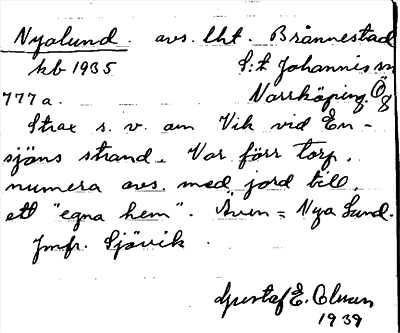 Nyalund. avs. lht. Brännestad
kb 1935 S:t Johannis sn
777a. Norrköping. Ög
Strax s. v. om Vik vid En-
sjöns strand. Var förr torp,
numera avs. med jord till
ett "egna hem". Även = Nya Lund.
Jmfr. Sjövik.
Gustaf E. Olsson
1939